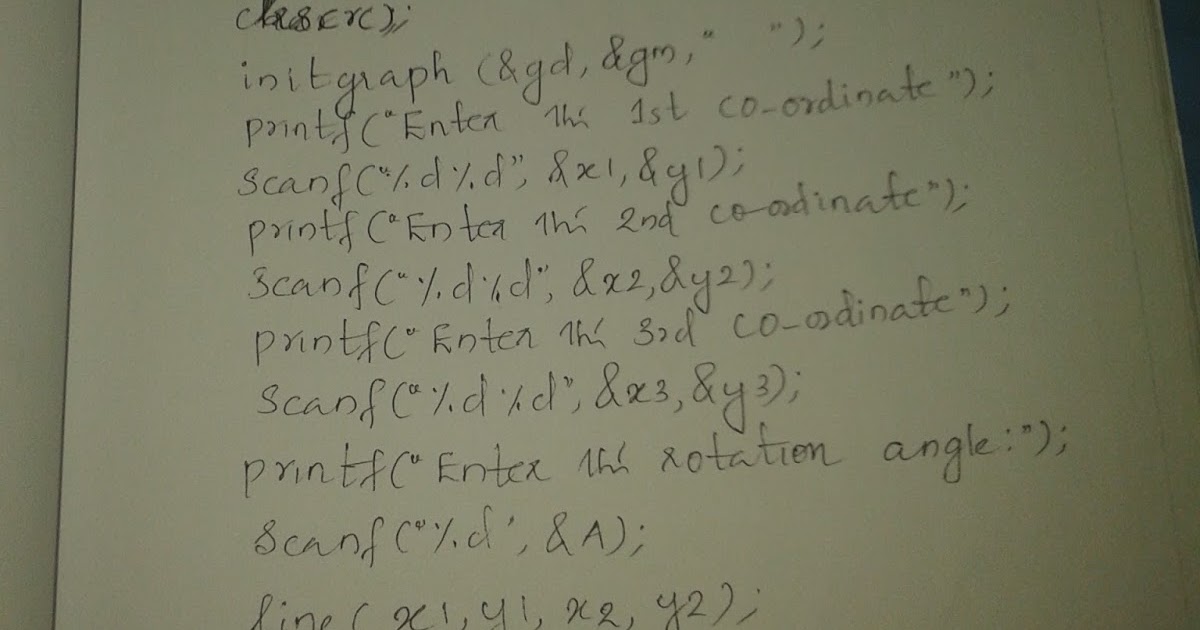 clrscr();
initgraph (&gd, &gm, "   ");
printf("Enter the 1st co-ordinate");
scanf("%d%d", &x1, &y1);
printf("Enter the 2nd co-ordinate");
scanf("%d%d", &x2, &y2);
printf("Enter the 3rd co-ordinate");
scanf("%d%d", &x3, &y3);
printf("Enter the rotation angle:");
scanf("%d", &A);
line( x1, y1, x2, y2);